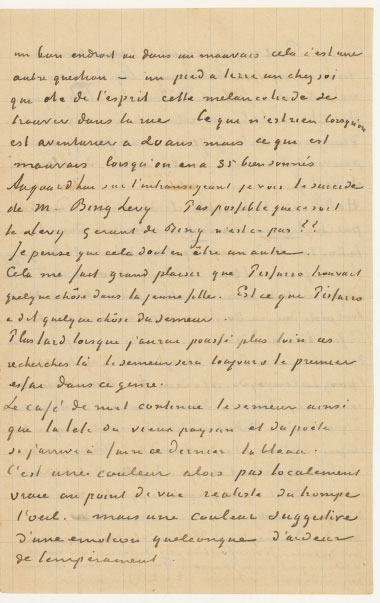 un bon endroit ou dans un mauvais cela c'est une
autre question – un pied a terre un chez soi
que ote de l'esprit cette melancolie de se
trouver dans la rue Ce que n'est rien lorsqu'on
est aventurier a 20 ans mais ce que est
mauvais lorsqu'on en a 35 bien sonnés
Aujourd'hui sur l'intransigeant je vois le suicide
de M. Bing Levy Pas possible que ce soit
le Levy Gerant de Bing n'est ce pas ??
Je pense que cela doit en être un autre.
Cela me fait grand plaisir que Pissarro trouvait
quelque chôse dans la jeune fille. Est ce que Pissarro
a dit quelque chôse du semeur.
Plus tard lorsque j'aurai poussé plus loin ces
recherches là le semeur sera toujours le premier
essai dans ce genre.
Le café de nuit continue le semeur ainsi
que la tete du vieux paysan et du poète
si j'arrive à faire ce dernier tableau.
C'est une couleur alors pas localement
vraie au point de vue realiste du trompe
l'oeil. mais une couleur suggestive
d'une emotion quelconque d'ardeur
de temperament.